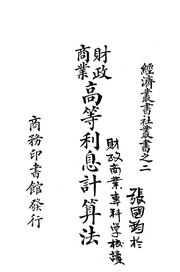 經濟叢書社叢書之二
張國筠於
財政商業專科學校講
財政
商業
高等利息計算法
商務印書館發行